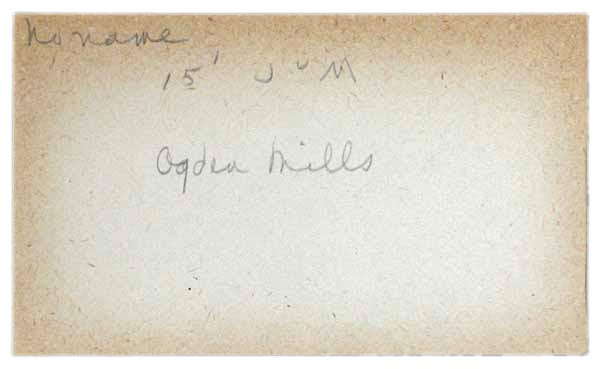 No name
15' J U M
Ogden Mills